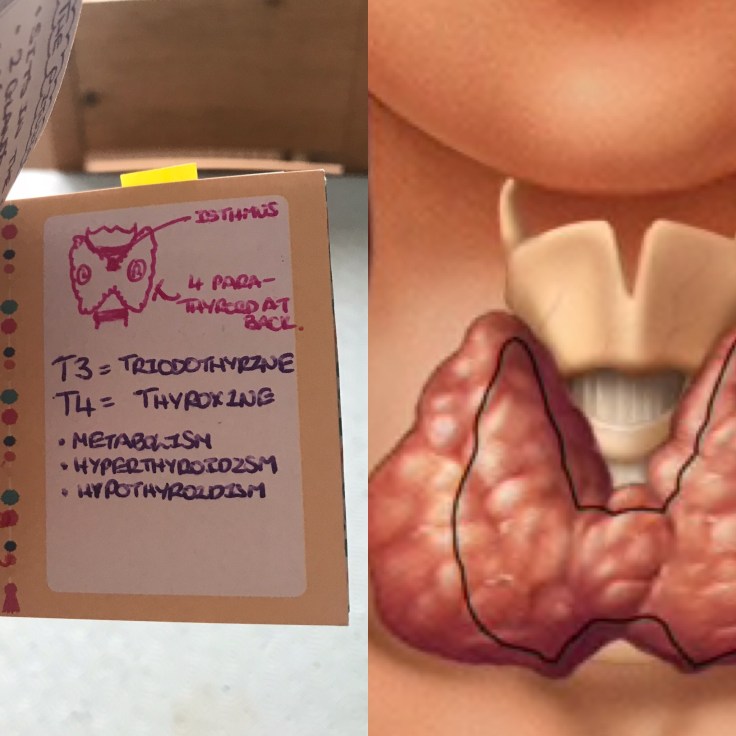 ISTHMUS
4 PARA-
THYROID AT
BACK.
T3 = TRIODOTHYRINE
T4 = THYROXINE
• METABOLISM
• HYPERTHYROIDISM
• HYPOTHYROIDISM